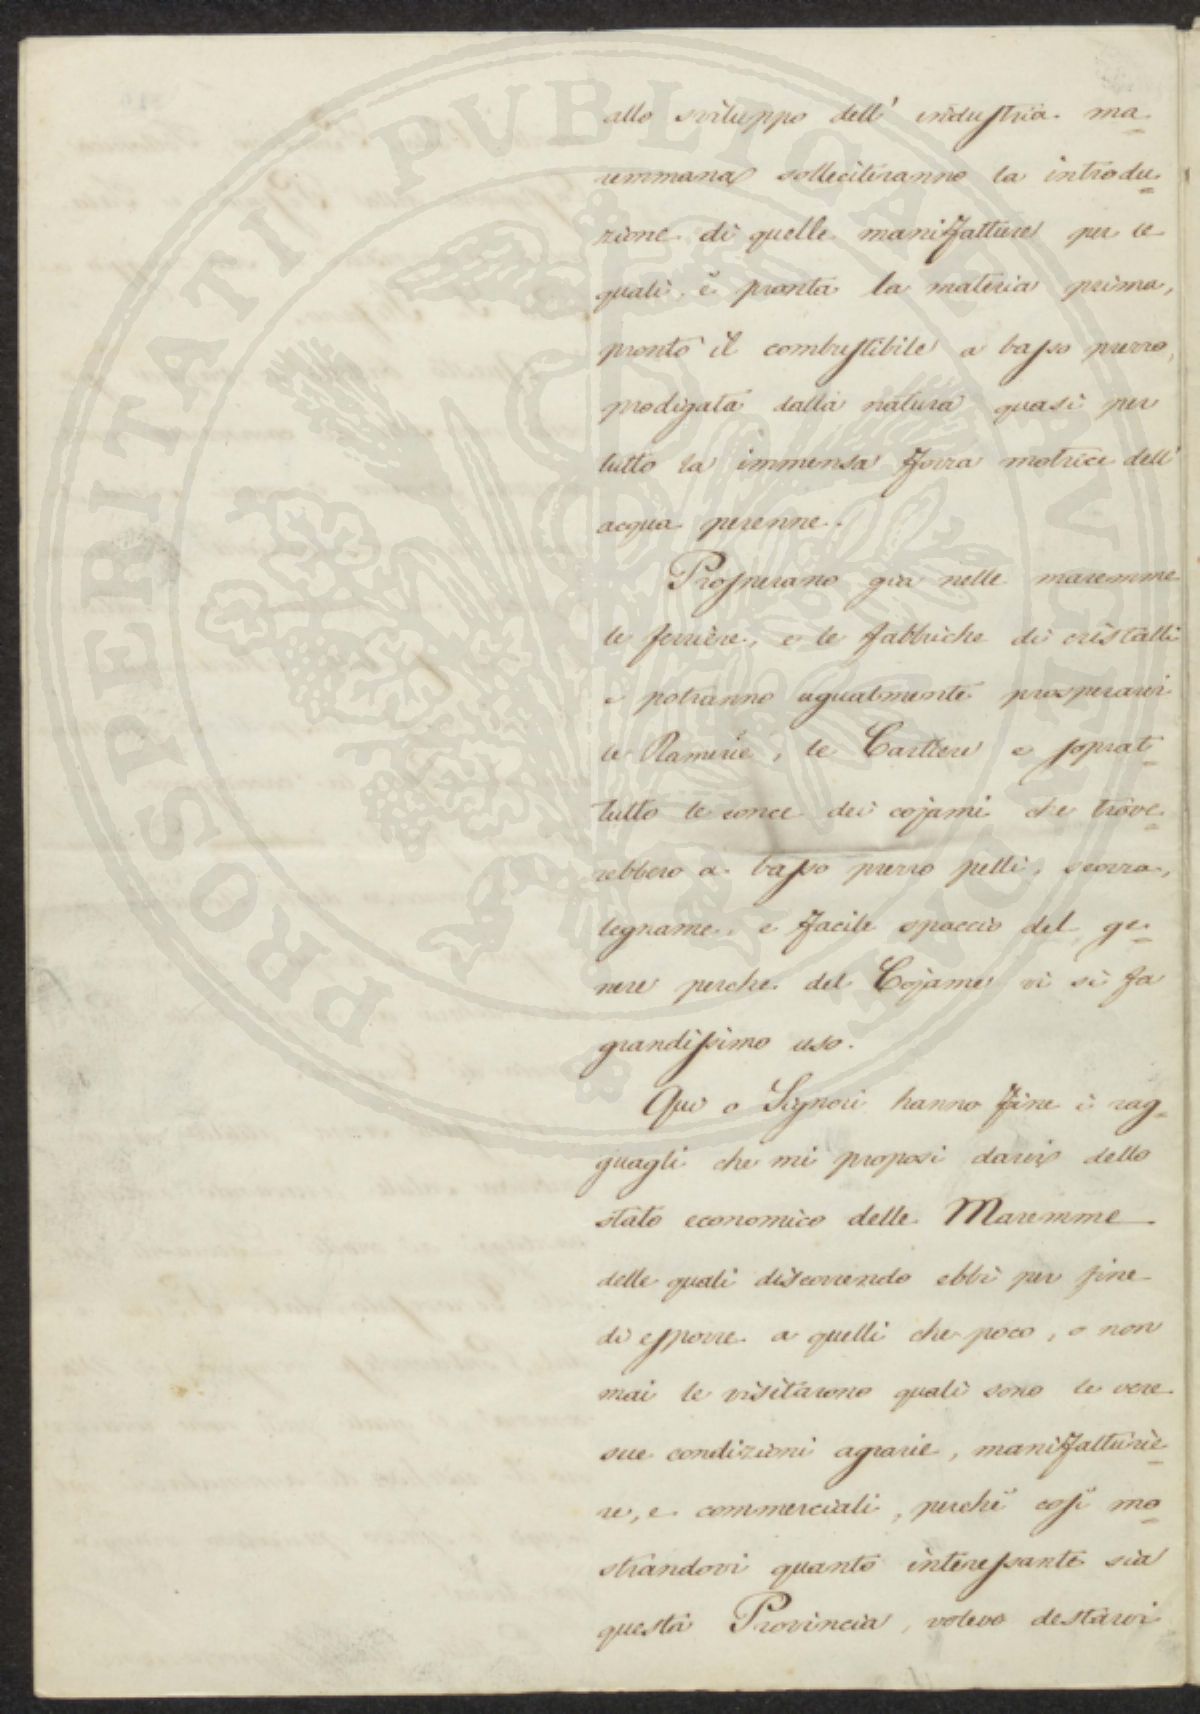 allo sviluppo dell' industria ma-
remmana solleciteranno la introdu-
zione di quelle manifatture per le
quali è pronta la materia prima,
pronto il combustibile a basso prezzo,
prodigata dalla natura quasi per
tutto la immensa forza motrice dell'
acqua perenne.
Prosperano già nelle maremme
le ferriere, e le fabbriche di cristalli
e potranno ugualmente prosperarvi
le Ramerie, le Cartiere e soprat-
tutto le conce dei cojami che trove-
rebbero a basso prezzo pelli, scorza,
legname, e facile spaccio del ge-
nere perche del Cojame vi si fa
grandissimo uso.
Qui o Signori hanno fine i rag-
guagli che mi proposi darvi dello
stato economico delle Maremme
delle quali discorrendo ebbi per fine
di esporre a quelli che poco, o non
mai le visitarono quali sono le vere
sue condizioni agrarie, manifatturie-
re, e commerciali, perchè così mo-
strandovi quanto interessante sia
questa Provincia, volevo destarvi
PROSPERITATI PUBLICAE AUGENDAE